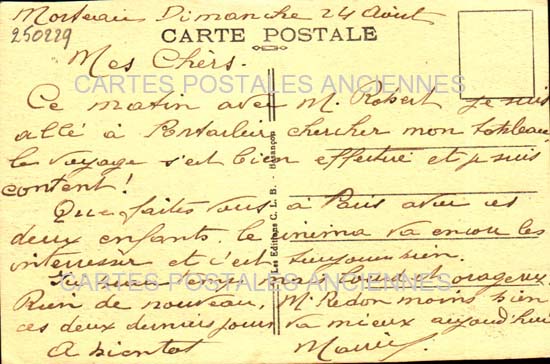 Morteau Dimanche 24 Août
250229
CARTE POSTALE
Mes Chèrs.
CARTES POSTALES ANCIENNES
Ce matin avec M. Robert je suis
allé à Pontarlier chercher mon
le voyage s'est bien effectué et je suis
content!
Que faites vous à Paris avec ces
deux enfants. le cinema va encore les
interesser et c'est toujours bien.
CARTES POSTALES ANCIENNES
Ici temps lourd et orageux
Rien de nouveau, M. Redon moins bien
ces deux derniers jours va mieux aujourd'hui
A bientot
Les Editions C. L. B. - Besançon